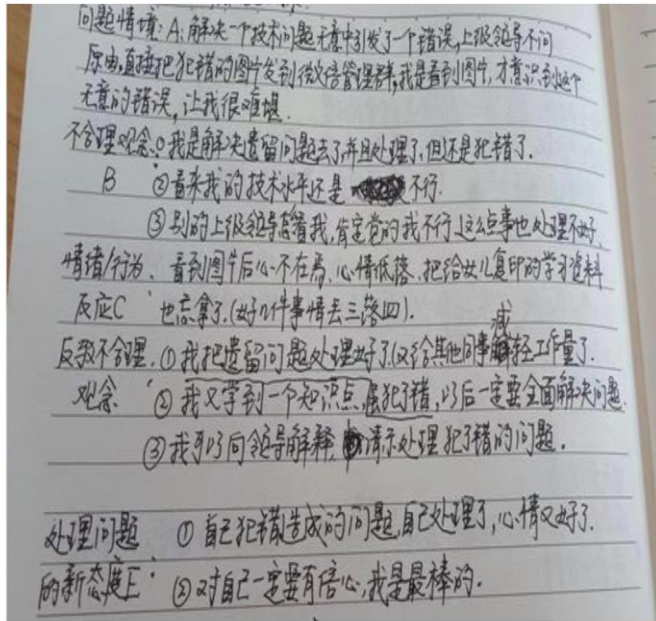 问题情境:A:解决一个技术问题无意中引发了一个错误,上级领导不问
原由,直接把犯错的图片发到微信管理群,我是看到图片,才意识到这个
无意的错误,让我很难堪.
不合理观念:①我是解决遗留问题去了,并且处理了,但还是犯错了.
B ②看来我的技术水平还是不行.
③别的上级领导看着我,肯定觉的我不行,这么点事也处理不好,
情绪/行为、看到图片后心不在焉、心情低落、把给女儿复印的学习资料
反应C 也忘拿了.(好几件事情丢三落四).
反驳不合理.①我把遗留问题处理好了.(又给其他同事减轻工作量了.
观念 ②我又学到一个知识点,虽犯了错,以后一定要全面解决问题.
③我可以向领导解释,请示处理犯了错的问题.
处理问题 ①自己犯错造成的问题,自己处理了,心情又好了.
的新态度E: ②对自己一定要有信心,我是最棒的.